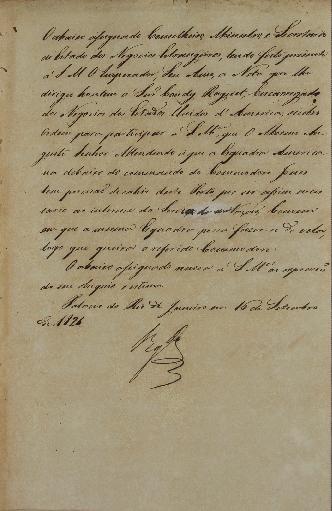 O abaixo assignado Conselheiro, Ministro e Secretario
de Estado dos Negocios Estrangeiros, tendo feito presente
a S. M. O Imperador, Seu Amo, a Nota que lhe
dirigio hontem o Snr Condy Raguet, Encarregado
dos Negocios dos Estados Unidos d'America, recebeo
Ordem para participar á S. Mce que O Mesmo Au-
gusto Senhor Attendendo a que a Esquadra America-
na debaixo do commando do Commodoro
tem precisão de sahir deste Porto, por ser assim neces-
sario ao interesse da Nação,
em que a mesma Esquadra possa fazer-se de vela
logo que queira o referido Commodoro.
O abaixo assignado renova á S. Mce as expressões
da sua estima.
Palacio do Rio de Janeiro em 16 de Setembro
de 1826